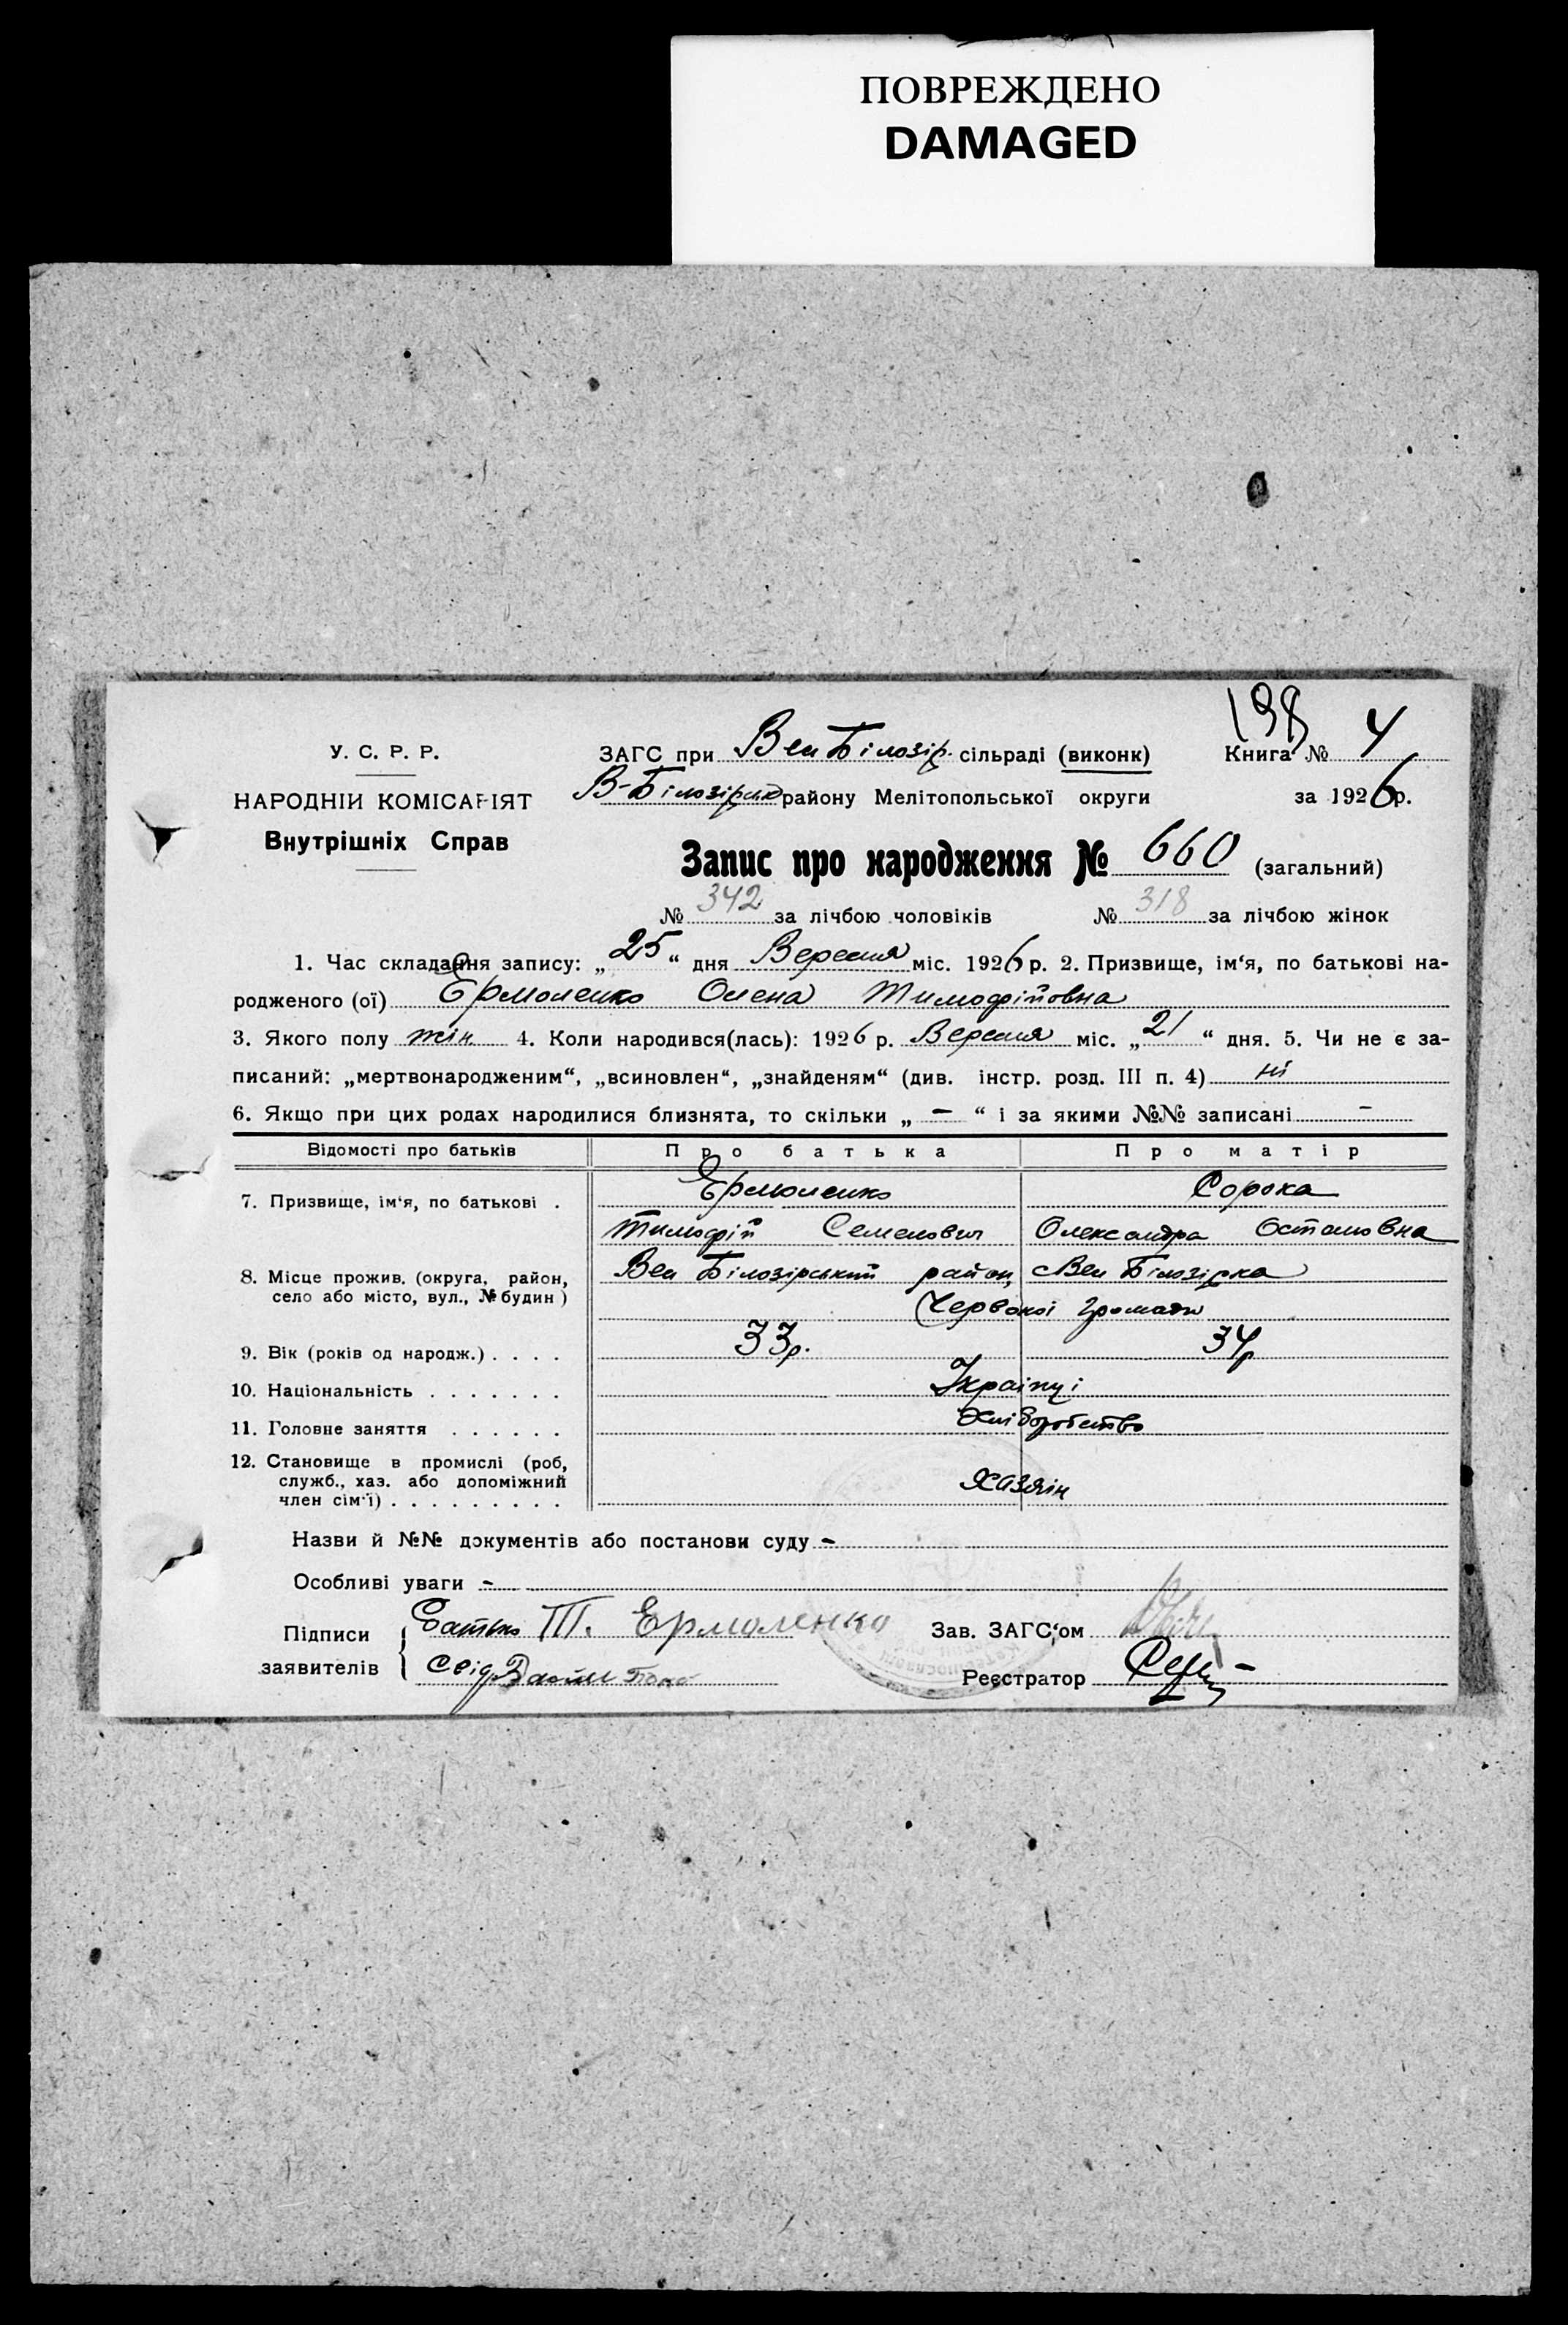 ПОВРЕЖДЕНО
DAMAGED
198
У. С. Р. Р.
НАРОДНІЙ КОМІСАРІЯТ
Внутрішніх Справ
ЗАГС при Вел Білозір. сільраді (виконк) Книга № 4
В-Білозірськ району Мелітопольської округи за 1926 р.
Запис про народження № 660 (загальний)
№ 342 за лічбою чоловіків № 318 за лічбою жінок
1. Час складання запису: „25“ дня Вересня міс. 1926 р. 2. Призвище, ім‘я, по батькові на-
родженого (ої) Ермоленко Олена Тимофіївна
3. Якого полу жін. 4. Коли народився(лась): 1926 р. Вересня міс. „21“ дня. 5. Чи не є за-
писаний: „мертвонародженим“, „всиновлен“, „знайденям“ (див. інстр. розд. III п. 4) ні
6. Якщо при цих родах народилися близнята, то скільки „ – “ і за якими №№ записані –
Відомості про батьків Про батька Про матір
7. Призвище, ім‘я, по батькові . Ермоленко Сорока
Тимофій Семенович Олександра Остаповна
8. Місце прожив. (округа, район, село або місто, вул., № будин ) Вел Білозірський район, Вел Білозірка
Червоної Громади
9. Вік (років од народж.) . . . . 33р. 34р
10. Національність . . . . . . . Українці
11. Головне заняття . . . . . . Хліборобство
12. Становище в промислі (роб,
служб., хаз. або допоміжний
член сім‘ї) . . . . . . . . . Хазяїн
Назви й №№ документів або постанови суду –
Особливі уваги –
Підписи заявителів
батько Т. Ермоленко
Свід.
Зав. ЗАГС‘ом
Реєстратор